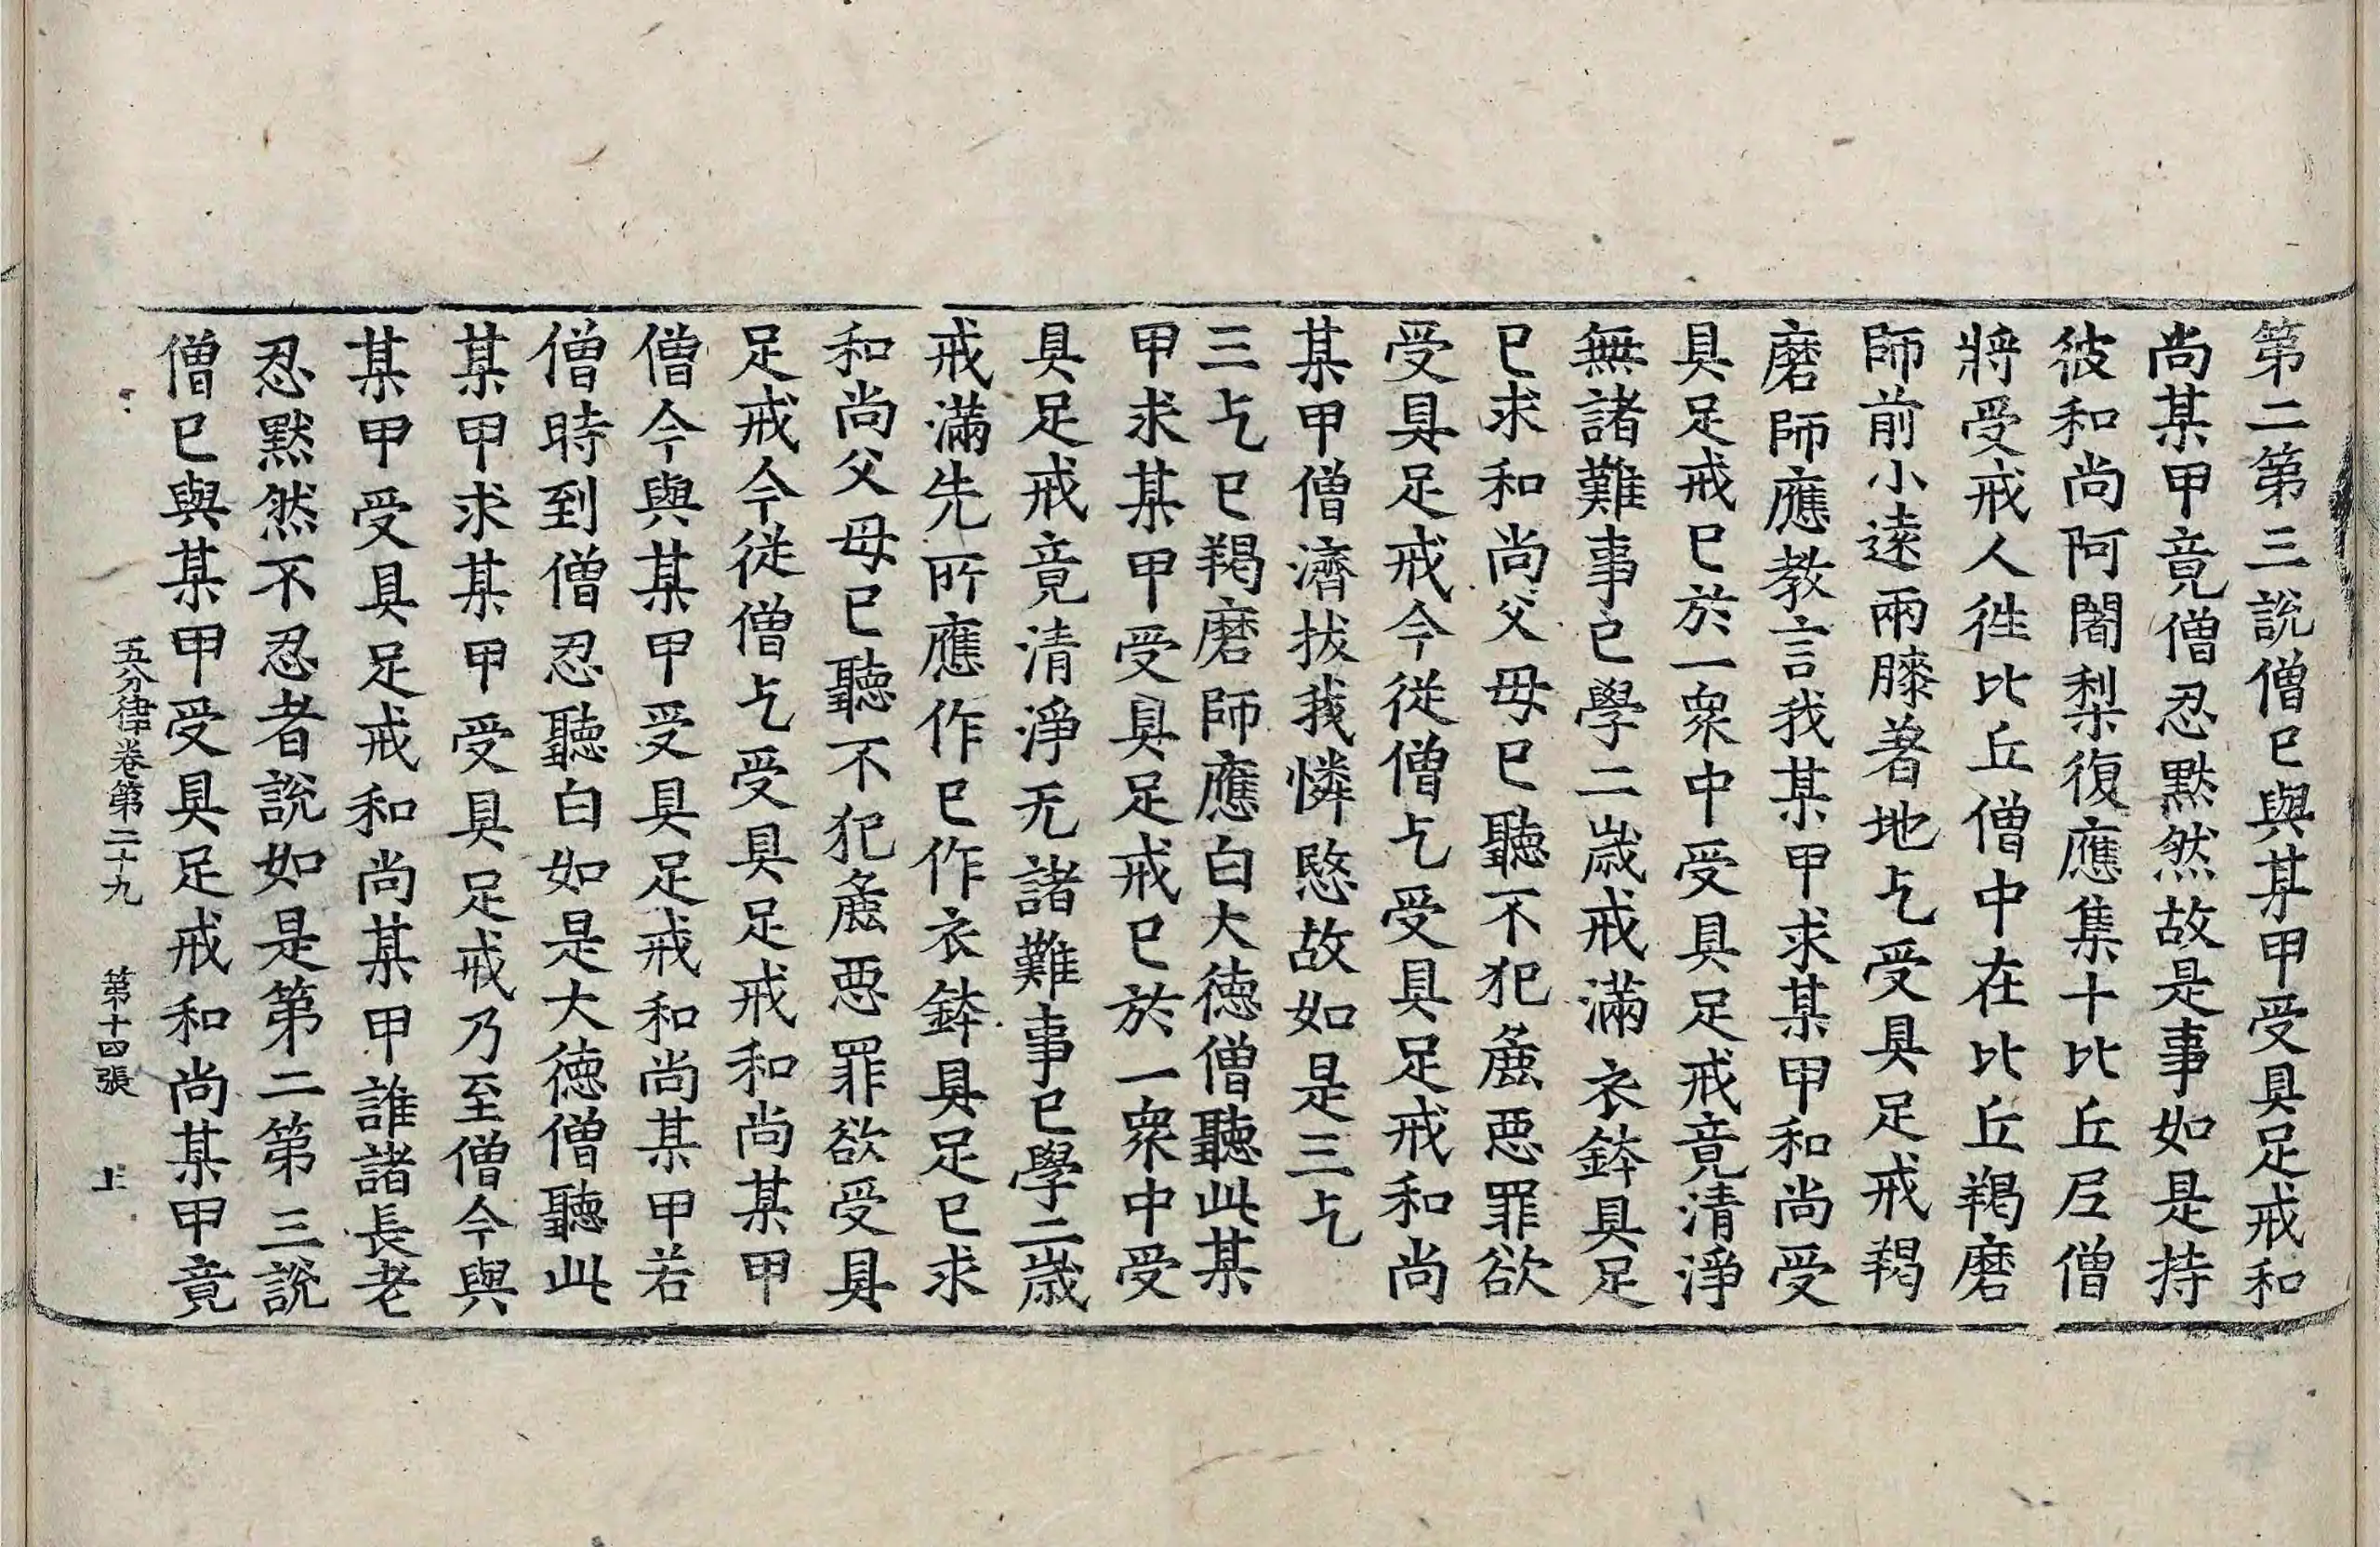 第二第三說僧已與某甲受具足戒和
尚某甲竟僧忍默然故是事如是持
彼和尚阿闍梨復應集十比丘尼僧
將受戒人徃比丘僧中在比丘羯磨
師前小遠兩膝著地乞受具足戒羯
磨師應教言我某甲求某甲和尚受
具足戒已於一衆中受具足戒竟清淨
無諸難事已學二歲戒滿衣鉢具足
已求和尚父母已聽不犯麁惡罪欲
受具足戒今從僧乞受具足戒和尚
某甲僧濟拔我憐愍故如是三乞
三乞已羯磨師應白大德僧聽此某
甲求某甲受具足戒已於一衆中受
具足戒竟清淨无諸難事已學二歲
戒滿先所應作已作衣鉢具足已求
和尚父母已聽不犯麁惡罪欲受具
足戒今從僧乞受具足戒和尚某甲
僧今與某甲受具足戒和尚某甲若
僧時到僧忍聽白如是大德僧聽此
某甲求某甲受具足戒乃至僧今與
某甲受具足戒和尚某甲誰諸長老
忍默然不忍者說如是第二第三說
僧已與某甲受具足戒和尚某甲竟
五分律卷第二十九 第十四張 上